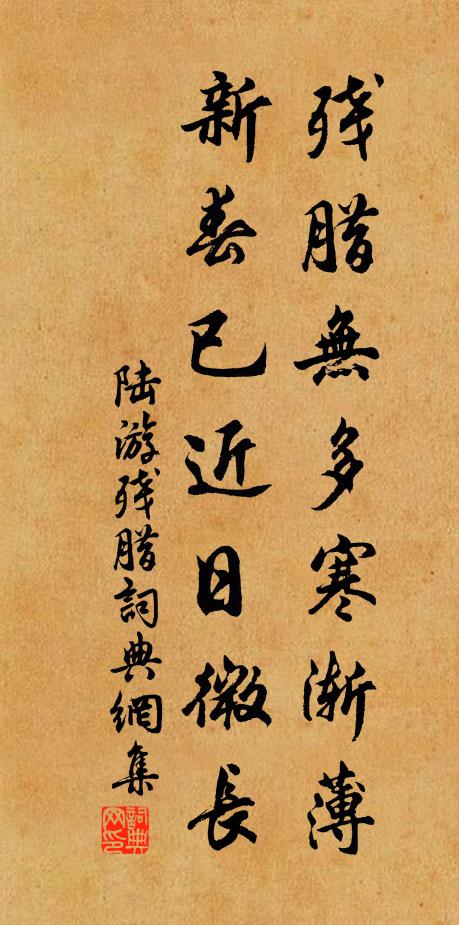 残腊無多寒渐薄
新春已近日微長
陆游残腊詞典網集
詞典网印